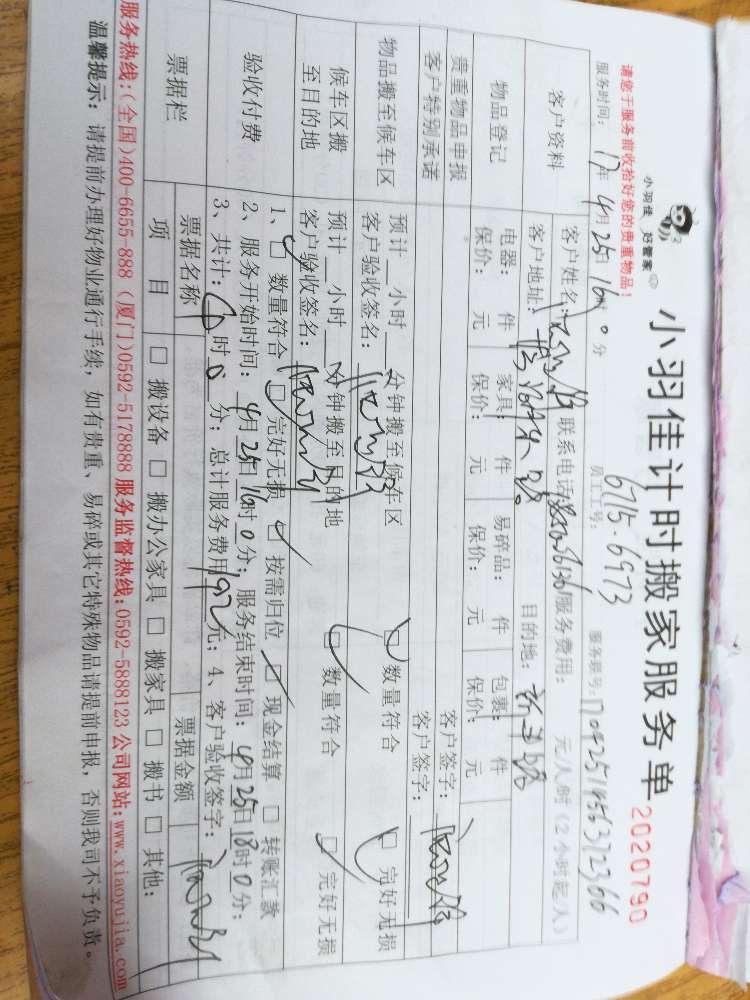 小羽佳 好管家
小羽佳计时搬家服务单 2020790
请您于服务前收拾好您的贵重物品！
员工工号：6715·6973
服务时间：17年4月25日16时0分 服务票号：
客户资料
客户姓名： 联系电话： 服务费用： 元/人/时（2小时起/人）
客户地址： 目的地：
物品登记
电器： 件 家具： 件 易碎品： 件 包裹： 件
保价： 元 保价： 元 保价： 元 保价： 元
贵重物品申报 客户签字：
客户特别承诺 客户签字：
物品搬至候车区
预计 小时 分钟搬至候车区 数量符合 完好无损
客户验收签名：
候车区搬至目的地
预计 小时 分钟搬至目的地 数量符合 完好无损
客户验收签名：
验收付费
1、 数量符合 完好无损 按需归位 现金结算 □ 转账汇款
2、服务开始时间：4月25日16时0分；服务结束时间：4月25日18时0分；
3、共计： 时0分；总计服务费用192元；4、客户验收签字：
票据栏 票据名称 票据金额
项目 □ 搬设备 □ 搬办公家具 □ 搬家具 □ 搬书 □ 其他：
服务热线：（全国）400-6655-888 （厦门）0592-5178888 服务监督热线：0592-5888123 公司网站：www.xiaoyujia.com
温馨提示：请提前办理好物业通行手续，如有贵重、易碎或其它特殊物品请提前申报，否则我司不予负责。